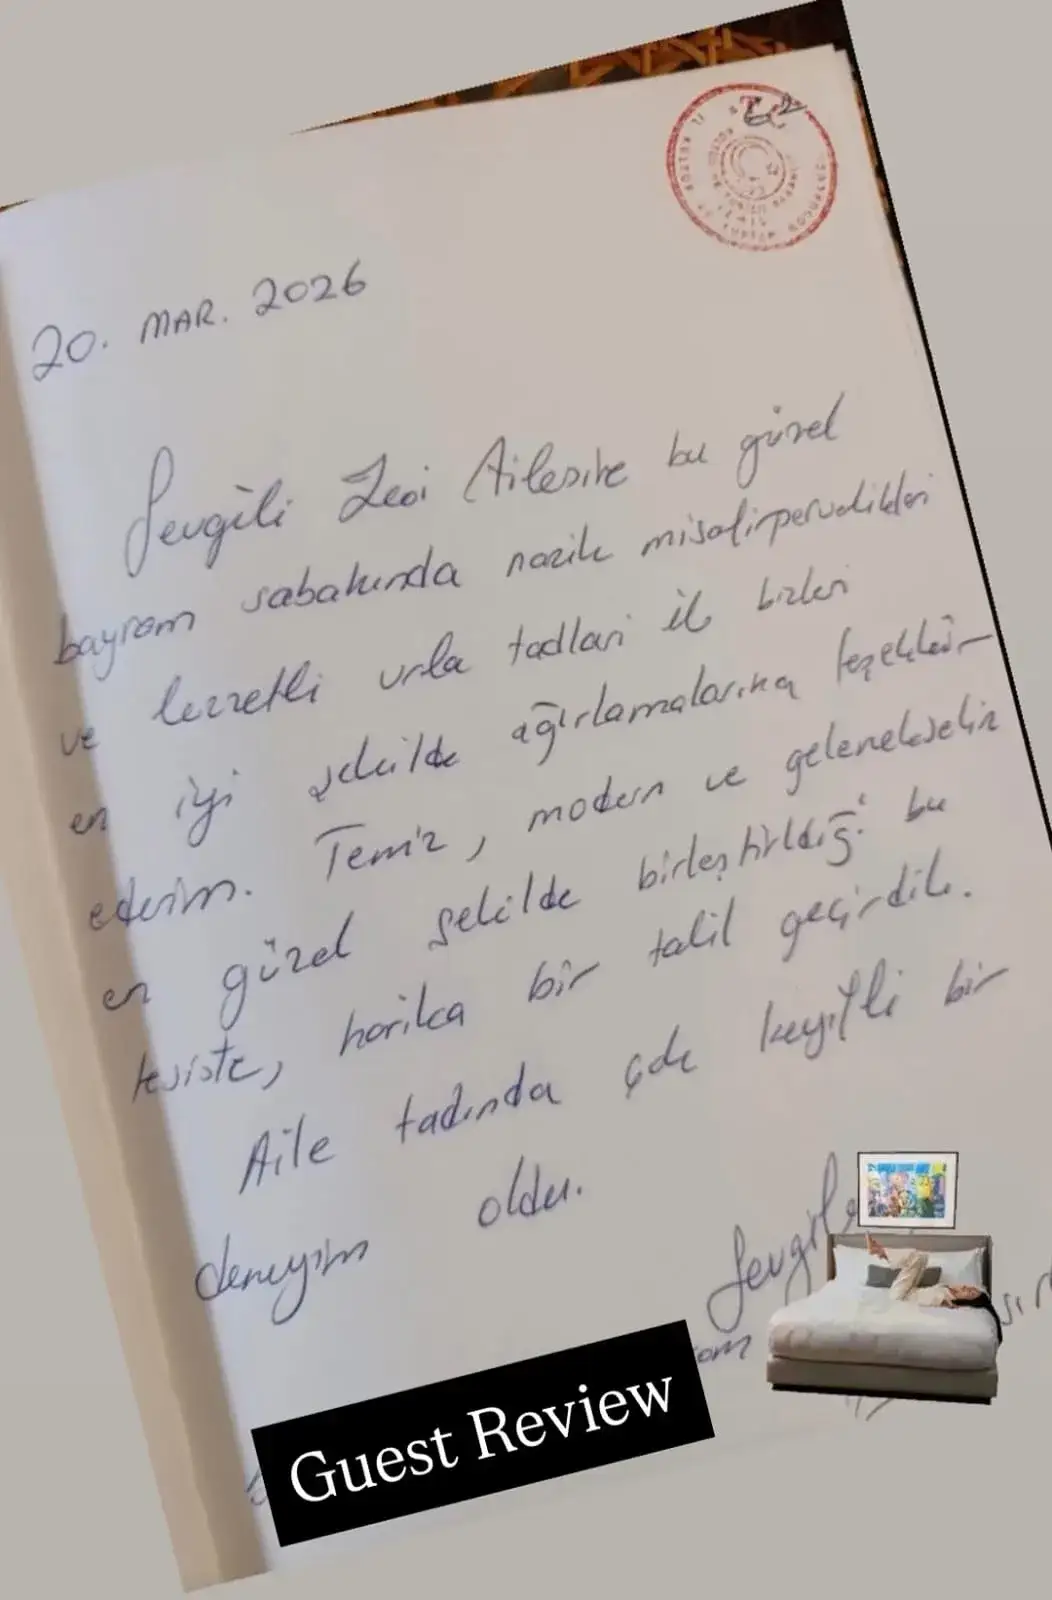 20. MAR. 2026
Sevgili Ailesine bu güzel
bayram sabahında nazik misafirperverlikleri
ve lezzetli urla tadları ile bizleri
en iyi şekilde ağırlamalarına teşekkür
ederim. Temiz, modern ve gelenekselin
en güzel şekilde birleştirildiği bu
tesiste, harika bir tatil geçirdik.
Aile tadında çok keyifli bir
deneyim oldu.
Guest Review